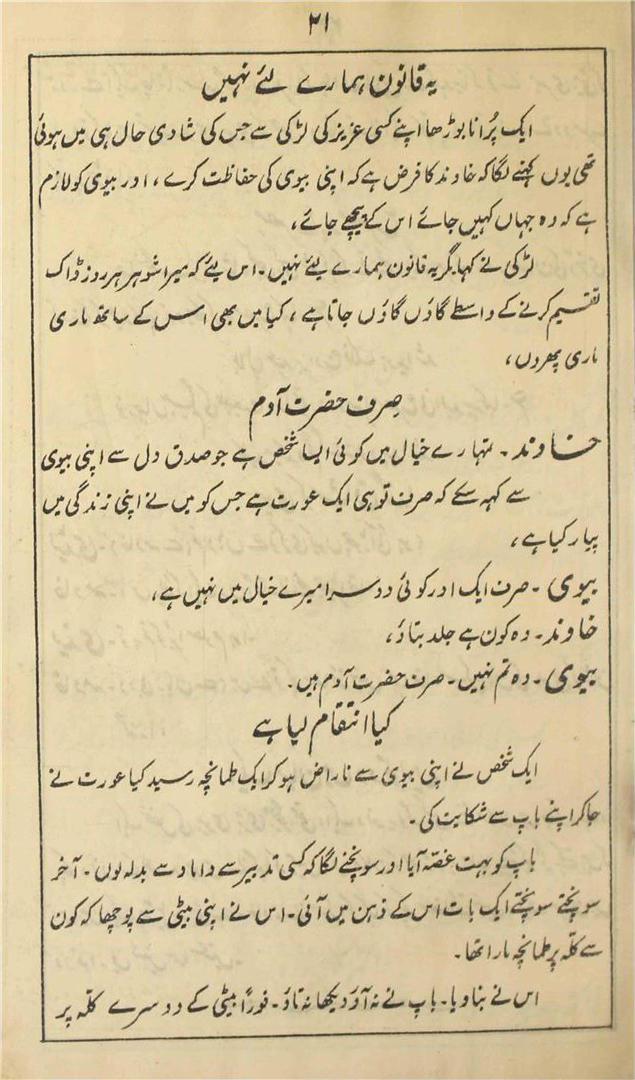 ۲۱
یہ قانون ہمارے لئے نہیں
ایک پُرانا بوڑھا اپنے کسی عزیز کی لڑکی سے جس کی شادی حال ہی میں ہوئی
تھی یوں کہنے لگا کہ خاوند کا فرض ہے کہ اپنی بیوی کی حفاظت کرے، اور بیوی کو لازم
ہے کہ وہ جہاں کہیں جائے اس کے پیچھے جائے،
لڑکی نے کہا مگر یہ قانون ہمارے لئے نہیں۔ اس لئے کہ میرا شوہر ہر روز ڈاک
تقسیم کرنے کے واسطے گاؤں گاؤں جاتا ہے، کیا میں بھی اس کے ساتھ ماری
ماری پھروں،
صِرف حضرت آدم
خاوند۔ تمہارے خیال میں کوئی ایسا شخص ہے جو صدق دل سے اپنی بیوی
سے کہہ سکے کہ صرف تو ہی ایک عورت ہے جس کو میں نے اپنی زندگی میں
پیار کیا ہے،
بیوی۔ صرف ایک اور کوئی دوسرا میرے خیال میں نہیں ہے،
خاوند۔ وہ کون ہے جلد بتاؤ،
بیوی۔ وہ تم نہیں۔ صرف حضرت آدم ہیں۔
کیا انتقام لیا ہے
ایک شخص نے اپنی بیوی سے ناراض ہو کر ایک طمانچہ رسید کیا عورت نے
جا کر اپنے باپ سے شکایت کی۔
باپ کو بہت غصّہ آیا اور سوچنے لگا کہ کسی تدبیر سے داماد سے بدلہ لوں۔ آخر
سوچتے سوچتے ایک بات اس کے ذہن میں آئی۔ اس نے اپنی بیٹی سے پوچھا کہ کون
سے کلّہ پر طمانچہ مارا تھا۔
اس نے بتا دیا۔ باپ نے نہ آؤ دیکھا نہ تاؤ۔ فوراً بیٹی کے دوسرے کلّہ پر